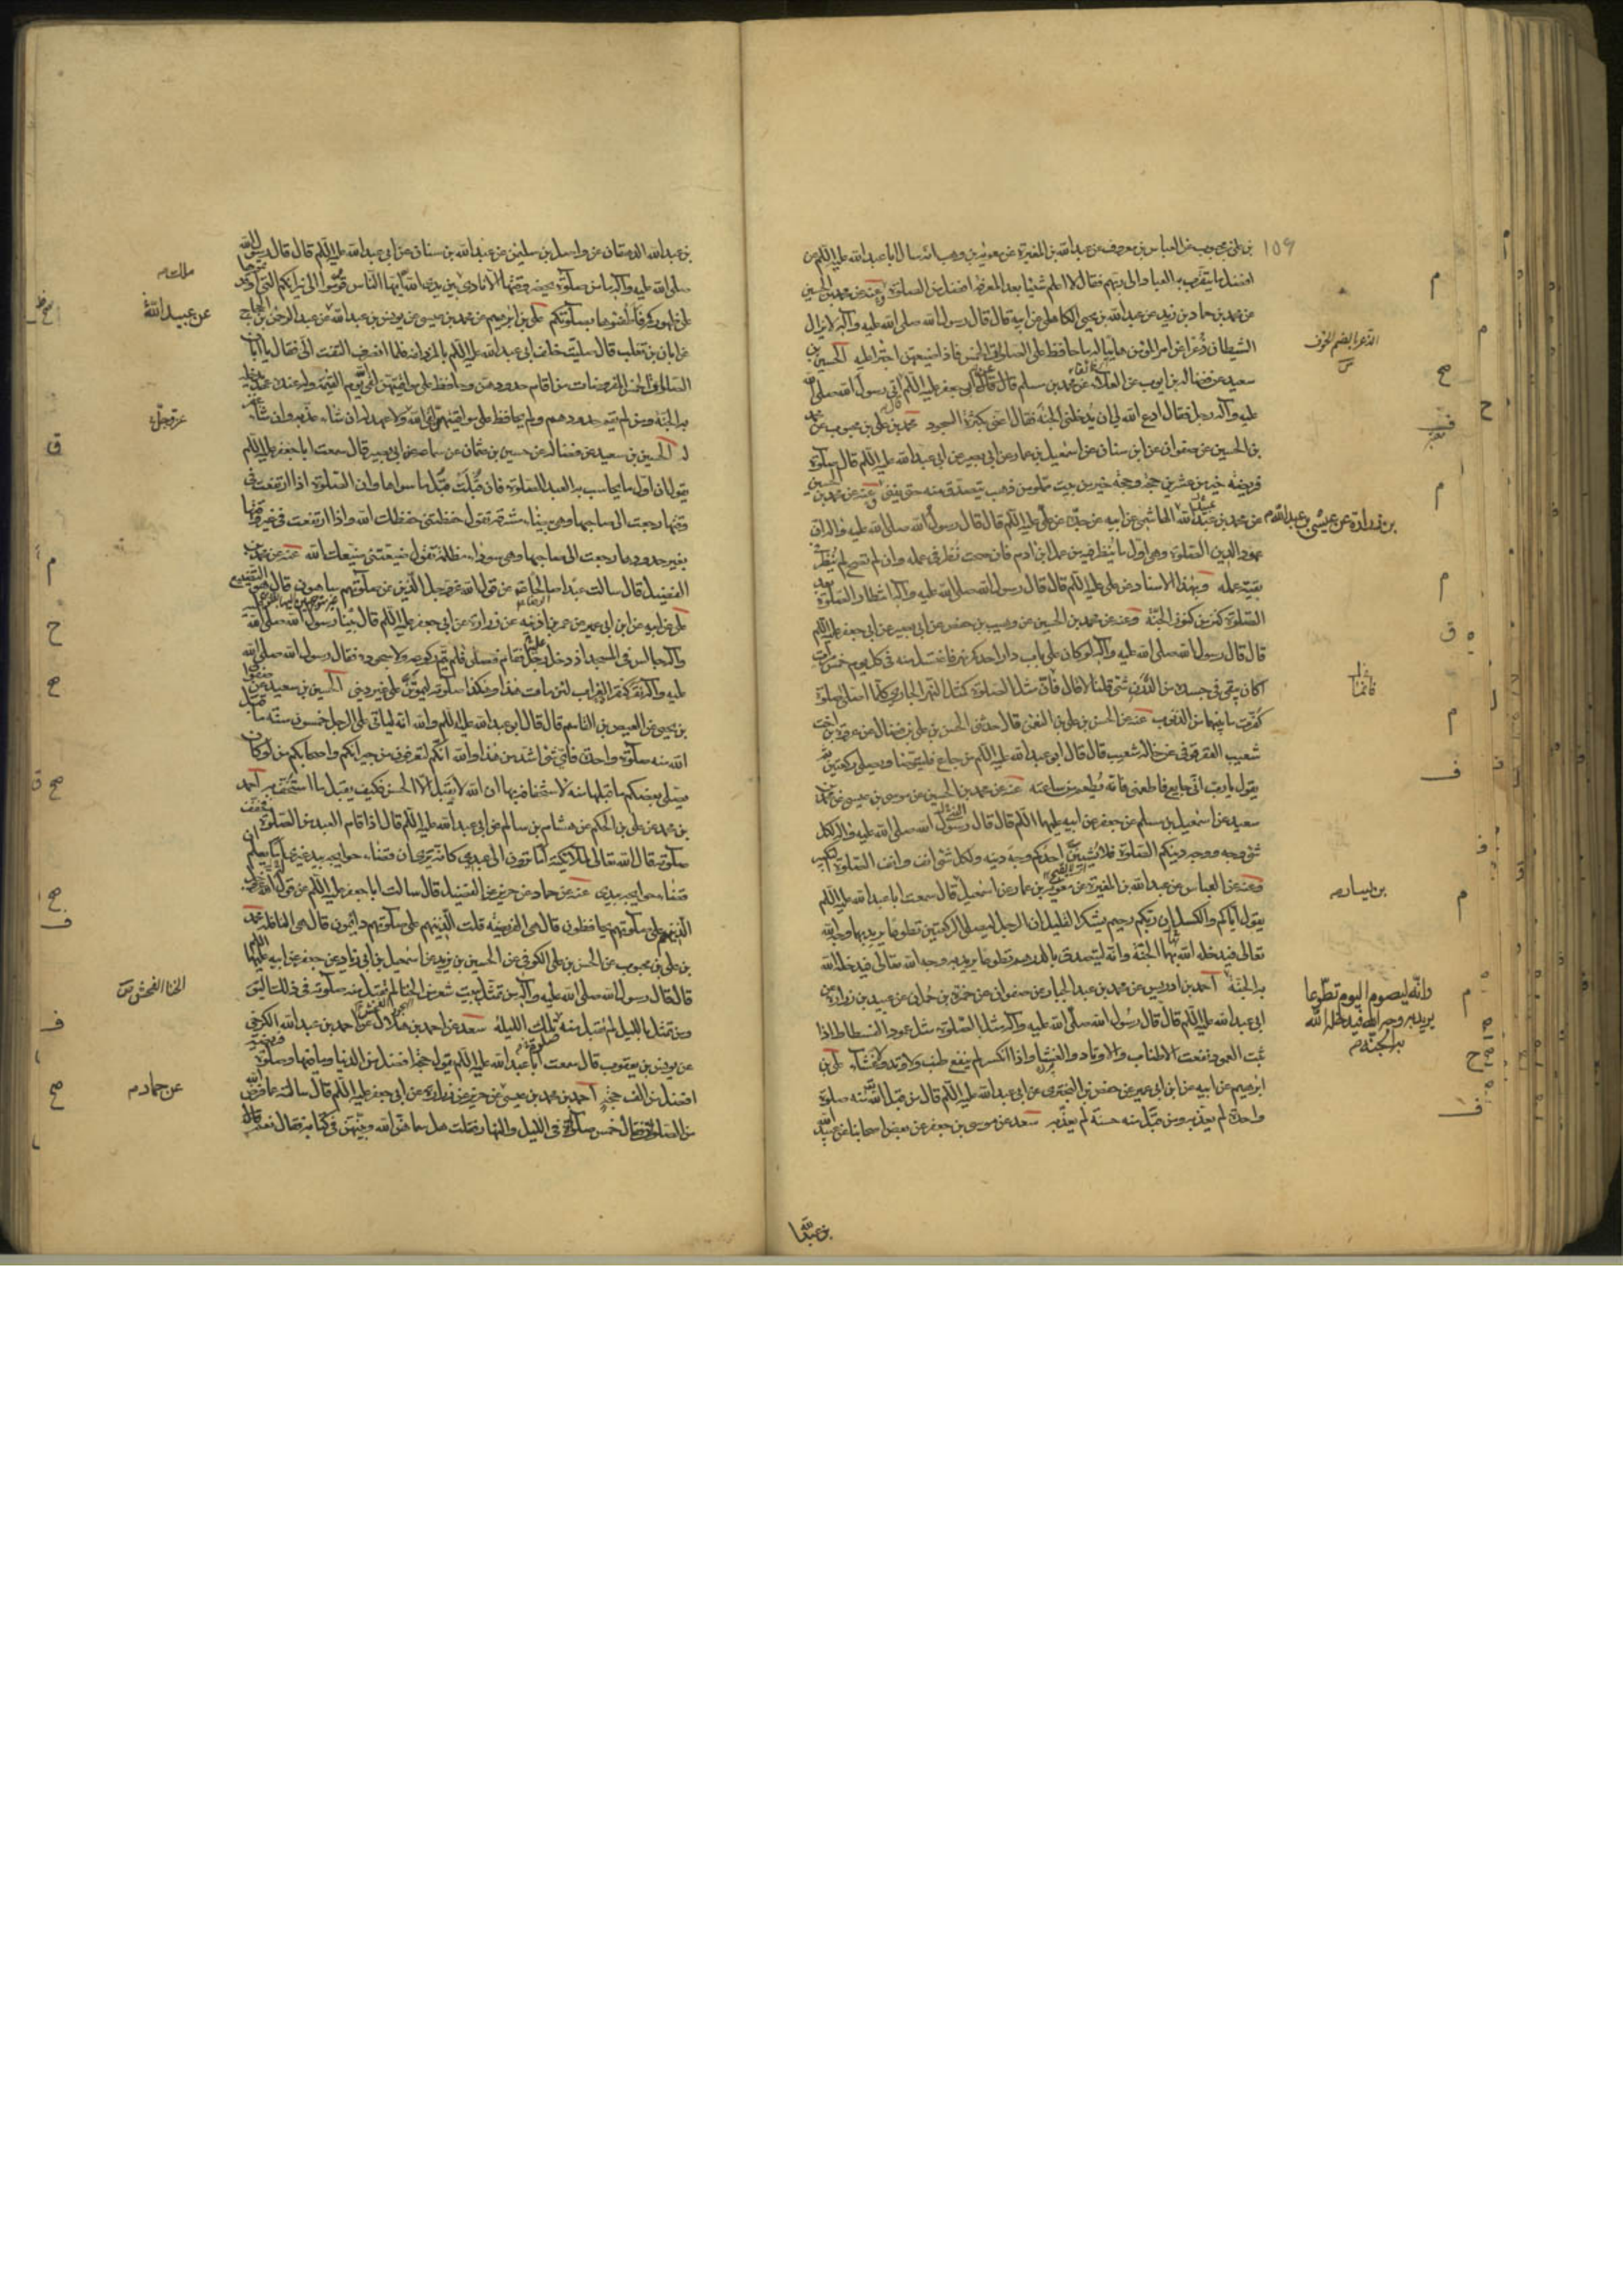 بن علي بن محبوب عن العباس بن معروف عن عبد الله بن المغيرة عن معوية بن وهب انه سال ابا عبد الله عليه السلم عن
افضل ما يتقرب به العباد الى ربهم فقال لا اعلم شيئا بعد المعرفة افضل من الصلوة وعنه عن محمد بن الحسين
عن محمد بن حماد بن زيد عن عبد الله بن يحيى الكاهلي عن ابيه قال قال رسول الله صلى الله عليه وآله لا يزال
الشيطان ذعرا من امر المؤمن هايبا له ما حافظ على الصلوات الخمس فاذا ضيعهن اجترا عليه الحسين بن
سعيد عن فضالة بن ايوب عن العلاء عن محمد بن مسلم قال قال ابي جعفر عليه السلم اتى رسول الله صلى الله
عليه وآله رجل فقال ادع الله لي ان يدخلني الجنة فقال اعني بكثرة السجود محمد بن علي بن محبوب عن محمد
بن الحسين عن صفوان عن ابن سنان عن اسمعيل بن عمار عن ابي بصير عن ابي عبد الله عليه السلم قال صلوة
فريضة خير من عشرين حجة وحجة خير من بيت مملو من ذهب يتصدق منه حتى يفنى وعنه عن محمد بن الحسين
عن محمد بن عبد الله الهاشمي عن ابيه عن جده عن علي عليه السلم قال قال رسول الله صلى الله عليه وآله ان
عمود الدين الصلوة وهي اول ما ينظر فيه من عمل ابن ادم فان صحت نظر في عمله وان لم تصح لم ينظر في
بقية عمله وبهذا الاسناد عن علي عليه السلم قال قال رسول الله صلى الله عليه وآله انتظار الصلوة بعد
الصلوة كنز من كنوز الجنة وعنه عن محمد بن الحسين عن وهيب بن حفص عن ابي بصير عن ابي جعفر عليه السلم
قال قال رسول الله صلى الله عليه وآله لو كان على باب دار احدكم نهر فاغتسل منه في كل يوم خمس مرات
اكان يبقى في جسده من الدرن شئ قلنا لا قال فان مثل الصلوة كمثل النهر الجاري كلما صلى صلوة
كفرت ما بينهما من الذنوب عنه عن الحسن بن علي بن النعمن قال حدثني الحسن بن علي بن فضال عن عروة بن اخت
شعيب العقرقوفي عن خاله شعيب قال قال ابو عبد الله عليه السلم من جاع فليتوضا وصلى ركعتين ثم
يقول يا رب اني جايع فاطعمني فانه يطعم من ساعته عنه عن محمد بن الحسين عن موسى بن عيسى عن محمد بن
سعيد عن اسمعيل بن مسلم عن جعفر عن ابيه عليهما السلم قال قال رسول الله صلى الله عليه وآله لكل
شئ وجه ووجه دينكم الصلوة فلا يشينن احدكم وجه دينه ولكل شئ انف وانف الصلوة التكبير
وعنه عن العباس عن عبد الله بن المغيرة عن معوية بن عمار عن اسمعيل قال سمعت ابا عبد الله عليه السلم
يقول اياكم والكسل ان ربكم رحيم يشكر القليل ان الرجل ليصلي الركعتين تطوعا يريد بهما وجه الله
تعالى فيدخله الله بهما الجنة وانه ليتصدق بالدرهم تطوعا يريد به وجه الله تعالى فيدخله الله
به الجنة احمد بن ادريس عن محمد بن عبد الجبار عن صفوان عن حمزة بن حمران عن عبيد بن زرارة عن
ابي عبد الله عليه السلم قال قال رسول الله صلى الله عليه وآله مثل الصلوة مثل عمود الفسطاط اذا
ثبت العمود نفعت الاطناب والاوتاد والغشا واذا انكسر لم ينفع طنب ولا وتد ولا غشاء علي بن
ابرهيم عن ابيه عن ابن ابي عمير عن حفص بن البختري عن ابي عبد الله عليه السلم قال من قبل الله منه صلوة
واحدة لم يعذبه ومن قبل منه حسنة لم يعذبه سعد عن موسى بن جعفر عن بعض اصحابنا عن عبيد الله
١٥٩
الذعر بالضم الخوف
بن زرارة عن عيسى بن عبد الله م
فانما
بن يسار صح
وانه ليصوم اليوم تطوعا
يريد به وجه الله فيدخله الله
به الجنة م
بن عبد الله
بن عبد الله الدهقان عن واصل بن سليمن عن عبد الله بن سنان عن ابي عبد الله عليه السلم قال قال رسول الله
صلى الله عليه وآله ما من صلوة يحضر وقتها الا نادى ملك بين يدي الله ايها الناس قوموا الى نيرانكم التي اوقدتموها
على ظهوركم فاطفئوها بصلوتكم علي بن ابرهيم عن محمد بن عيسى عن يونس بن عبد الله عن عبد الرحمن بن الحجاج
عن ابان بن تغلب قال صليت خلف ابي عبد الله عليه السلم بالمزدلفة فلما انصرف التفت الي فقال يا ابان
الصلوات الخمس المفروضات من اقام حدودهن وحافظ على مواقيتهن لقي الله يوم القيمة وله عنده عهد يدخله
به الجنة ومن لم يقم حدودهن ولم يحافظ على مواقيتهن لقي الله ولا عهد له ان شاء عذبه وان شاء غفر
له الحسين بن سعيد عن فضالة عن حسين بن عثمان عن سماعة عن ابي بصير قال سمعت ابا جعفر عليه السلم
يقول ان اول ما يحاسب به العبد الصلوة فان قبلت قبل ما سواها وان الصلوة اذا ارتفعت في
وقتها رجعت الى صاحبها وهي بيضاء مشرقة تقول حفظتني حفظك الله واذا ارتفعت في غير وقتها
بغير حدودها رجعت الى صاحبها وهي سوداء مظلمة تقول ضيعتني ضيعك الله عنه عن محمد بن
الفضيل قال سالت عبدا صالحا عن قول الله عز وجل الذين هم عن صلوتهم ساهون قال هو التضييع
علي عن ابيه عن ابن ابي عمير عن عمر بن اذينه عن زرارة عن ابي جعفر عليه السلم قال بينا رسول الله صلى الله عليه
وآله جالس في المسجد اذ دخل رجل فقام فصلى فلم يتم ركوعه ولا سجوده فقال رسول الله صلى الله
عليه وآله نقر كنقر الغراب لئن مات هذا وهكذا صلوته ليموتن على غير ديني الحسين بن سعيد عن صفوان
بن يحيى عن العيص بن القاسم قال قال ابو عبد الله عليه السلم والله انه لياتي على الرجل خمسون سنة ما قبل
الله منه صلوة واحدة فاي شئ اشد من هذا والله انكم لتعرفون من جيرانكم واصحابكم من لو كان
يصلي لبعضكم ما قبلها منه لاستخفافه بها ان الله لا يقبل الا الحسن فكيف يقبل ما استخف به احمد
بن محمد عن علي بن الحكم عن هشام بن سالم عن ابي عبد الله عليه السلم قال اذا قام العبد في الصلوة فخفف
صلوته قال الله تعالى لملائكته اما ترون الى عبدي كانه يرى ان قضاء حوايجه بيد غيري اما يعلم ان
قضاء حوايجه بيدي عنه عن حماد عن حريز عن الفضيل قال سالت ابا جعفر عليه السلم عن قول الله عز وجل
الذين هم على صلوتهم يحافظون قال هي الفريضة قلت الذين هم على صلوتهم دايمون قال هي النافلة محمد
بن علي بن محبوب عن الحسن بن علي الكوفي عن الحسين بن يزيد عن اسمعيل بن ابي زياد عن جعفر عن ابيه عليهما السلم
قال قال رسول الله صلى الله عليه وآله من تمثل ببيت شعر من الخنا لم تقبل منه صلوة في ذلك اليوم
ومن تمثل بالليل لم تقبل منه صلوة تلك الليلة سعد عن احمد بن هلال عن احمد بن عبد الله الكرخي
عن يونس بن يعقوب قال سمعت ابا عبد الله عليه السلم يقول حجة افضل من الدنيا وما فيها وصلوة فريضة
افضل من الف حجة احمد بن محمد بن عيسى عن حريز عن زرارة عن ابي جعفر عليه السلم قال سالته عما فرض الله
من الصلوة فقال خمس صلوات في الليل والنهار فقلت هل سماهن الله وبينهن في كتابه فقال نعم قال
عن عبيد الله
عز وجل
الخنا الفحش ص
عن حماد م